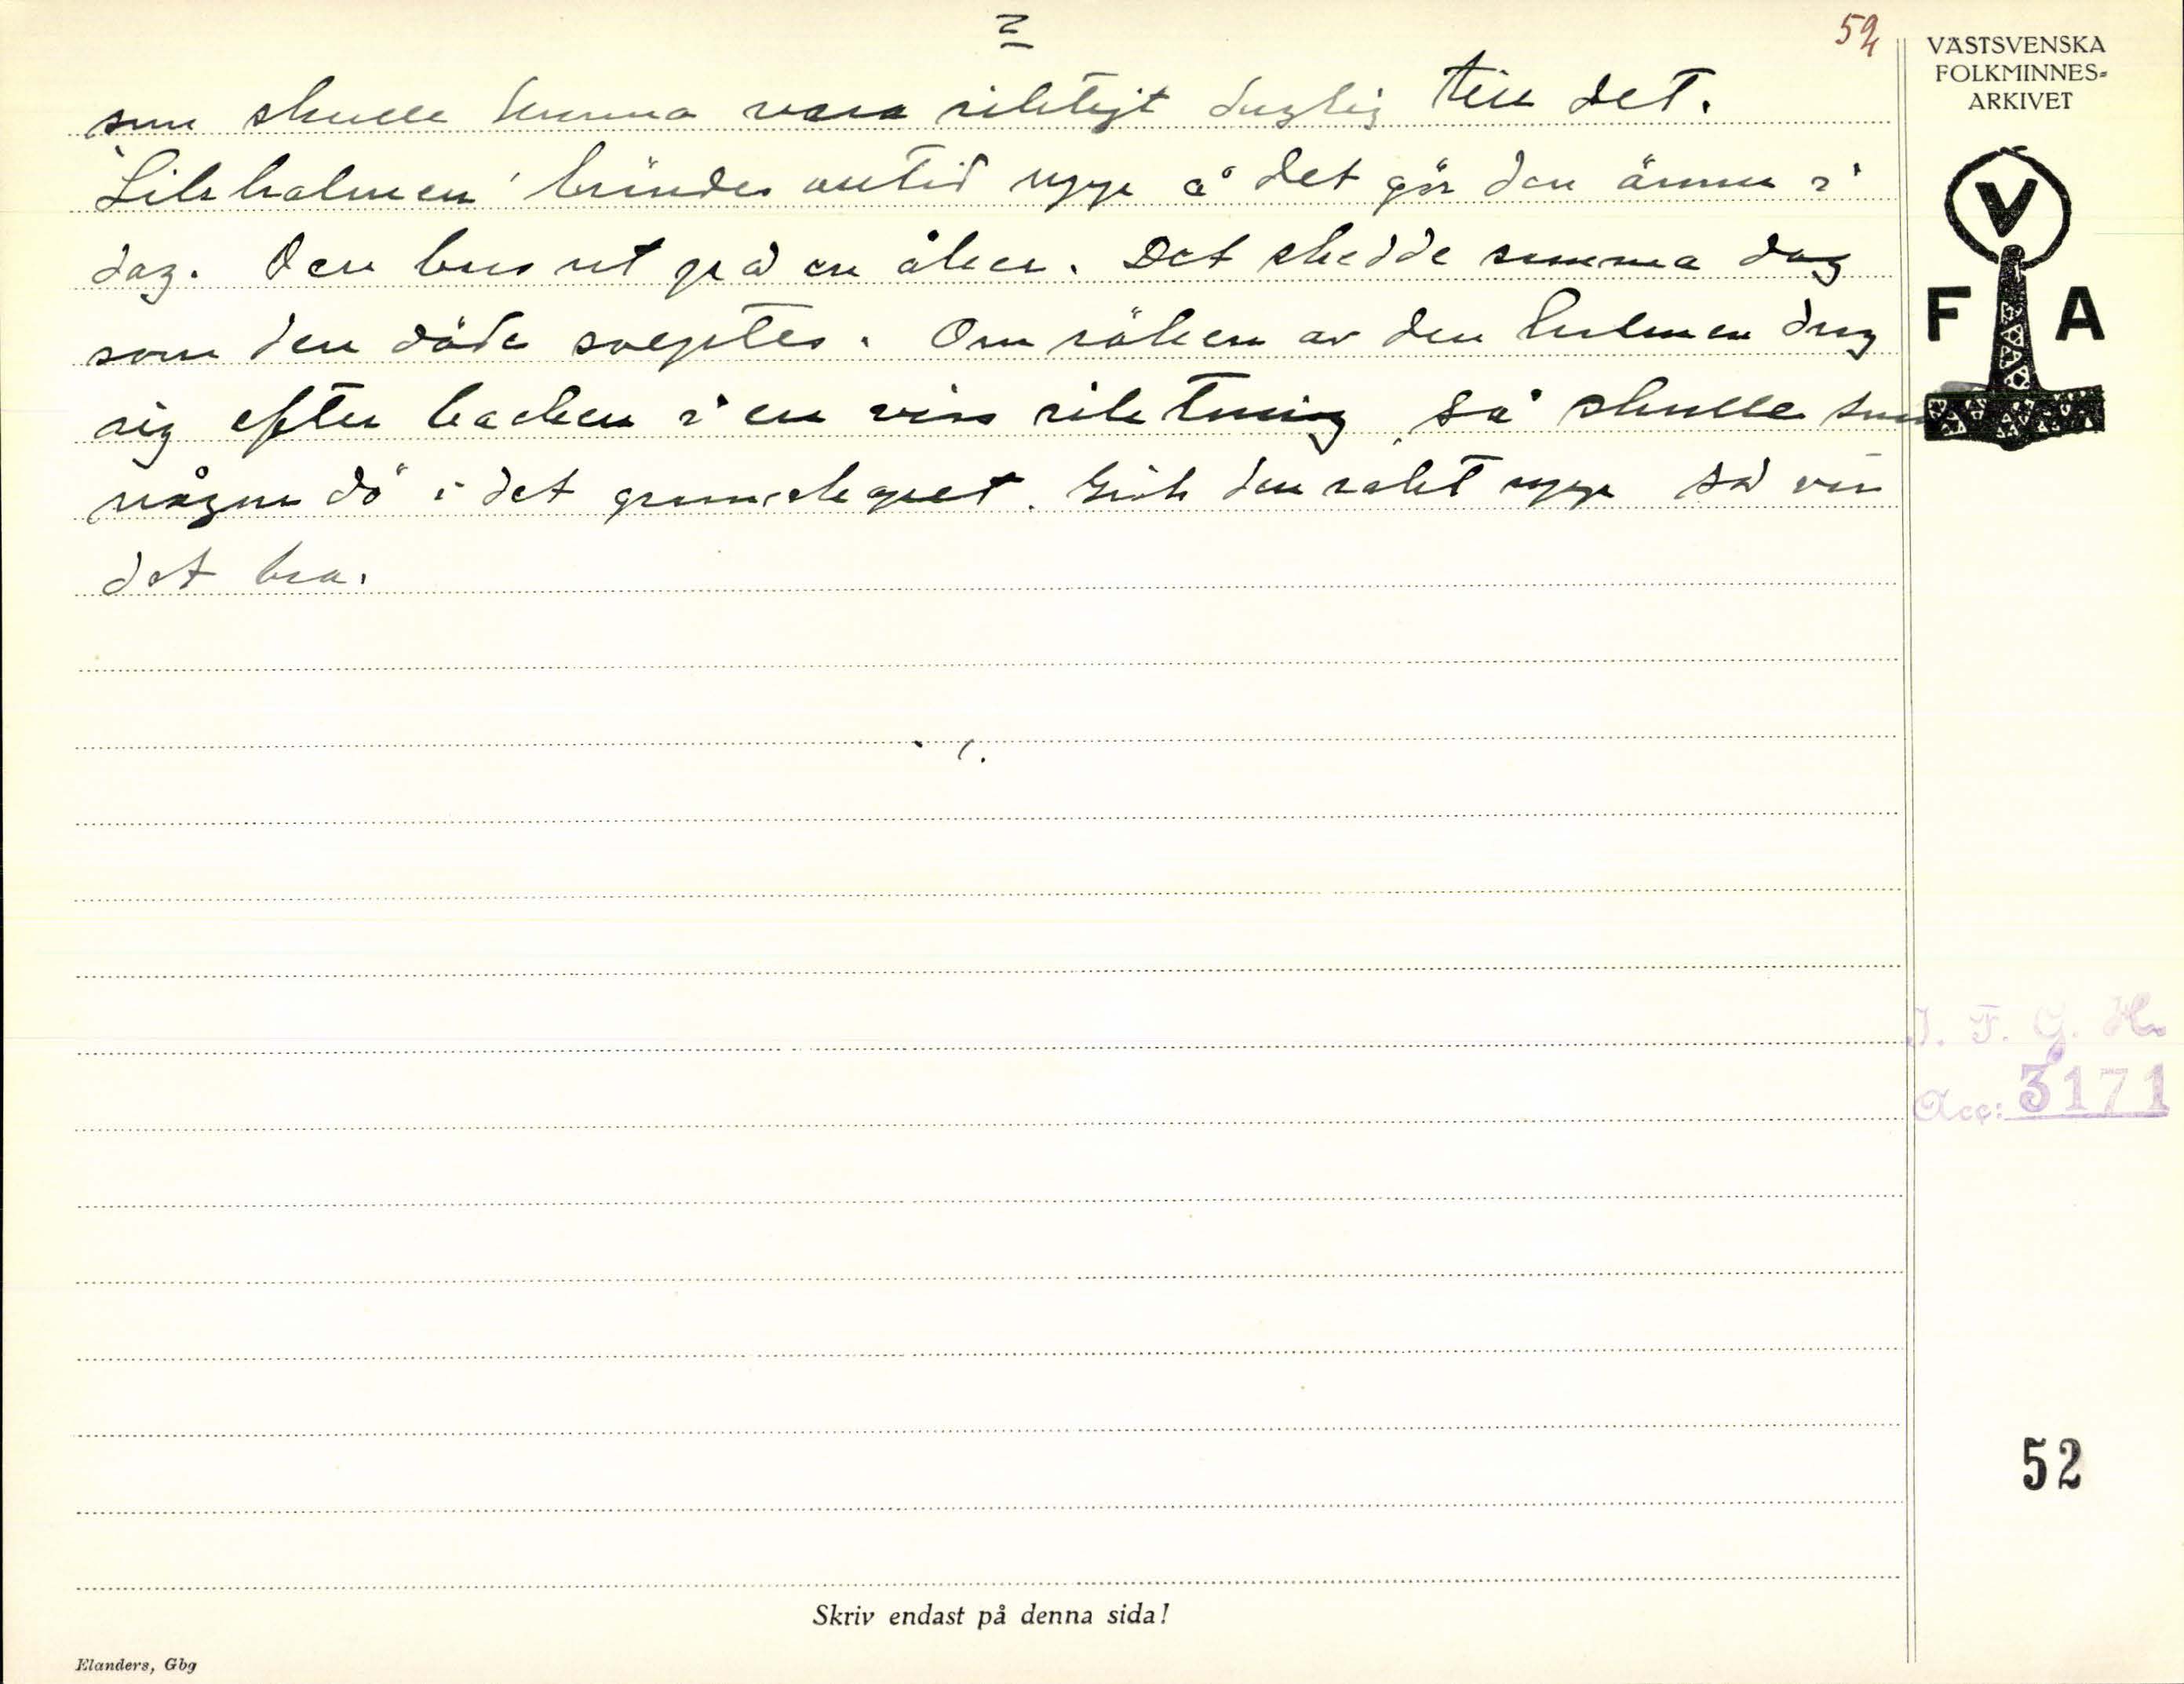 2
52
VÄSTSVENSKA
FOLKMINNES-
ARKIVET
V
F A
som skulle kunna vara riktigt duglig till det.
"Likhalmen" brändes alltid upp å det gör den ännu i
dag. Den bars ut på en åker. Det skedde samma dag
som den döde sveptes. Om röken av den halmen drog
sig efter backen i en viss riktning, så skulle snart
någon dö i det grannskapet. Gick den rakt upp så var
det bra.
I. F. G. H.
Acc: 3171
52
Skriv endast på denna sida!
Elanders, Gbg